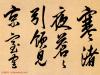 寒渚
夜蒼〻
引領見
京室